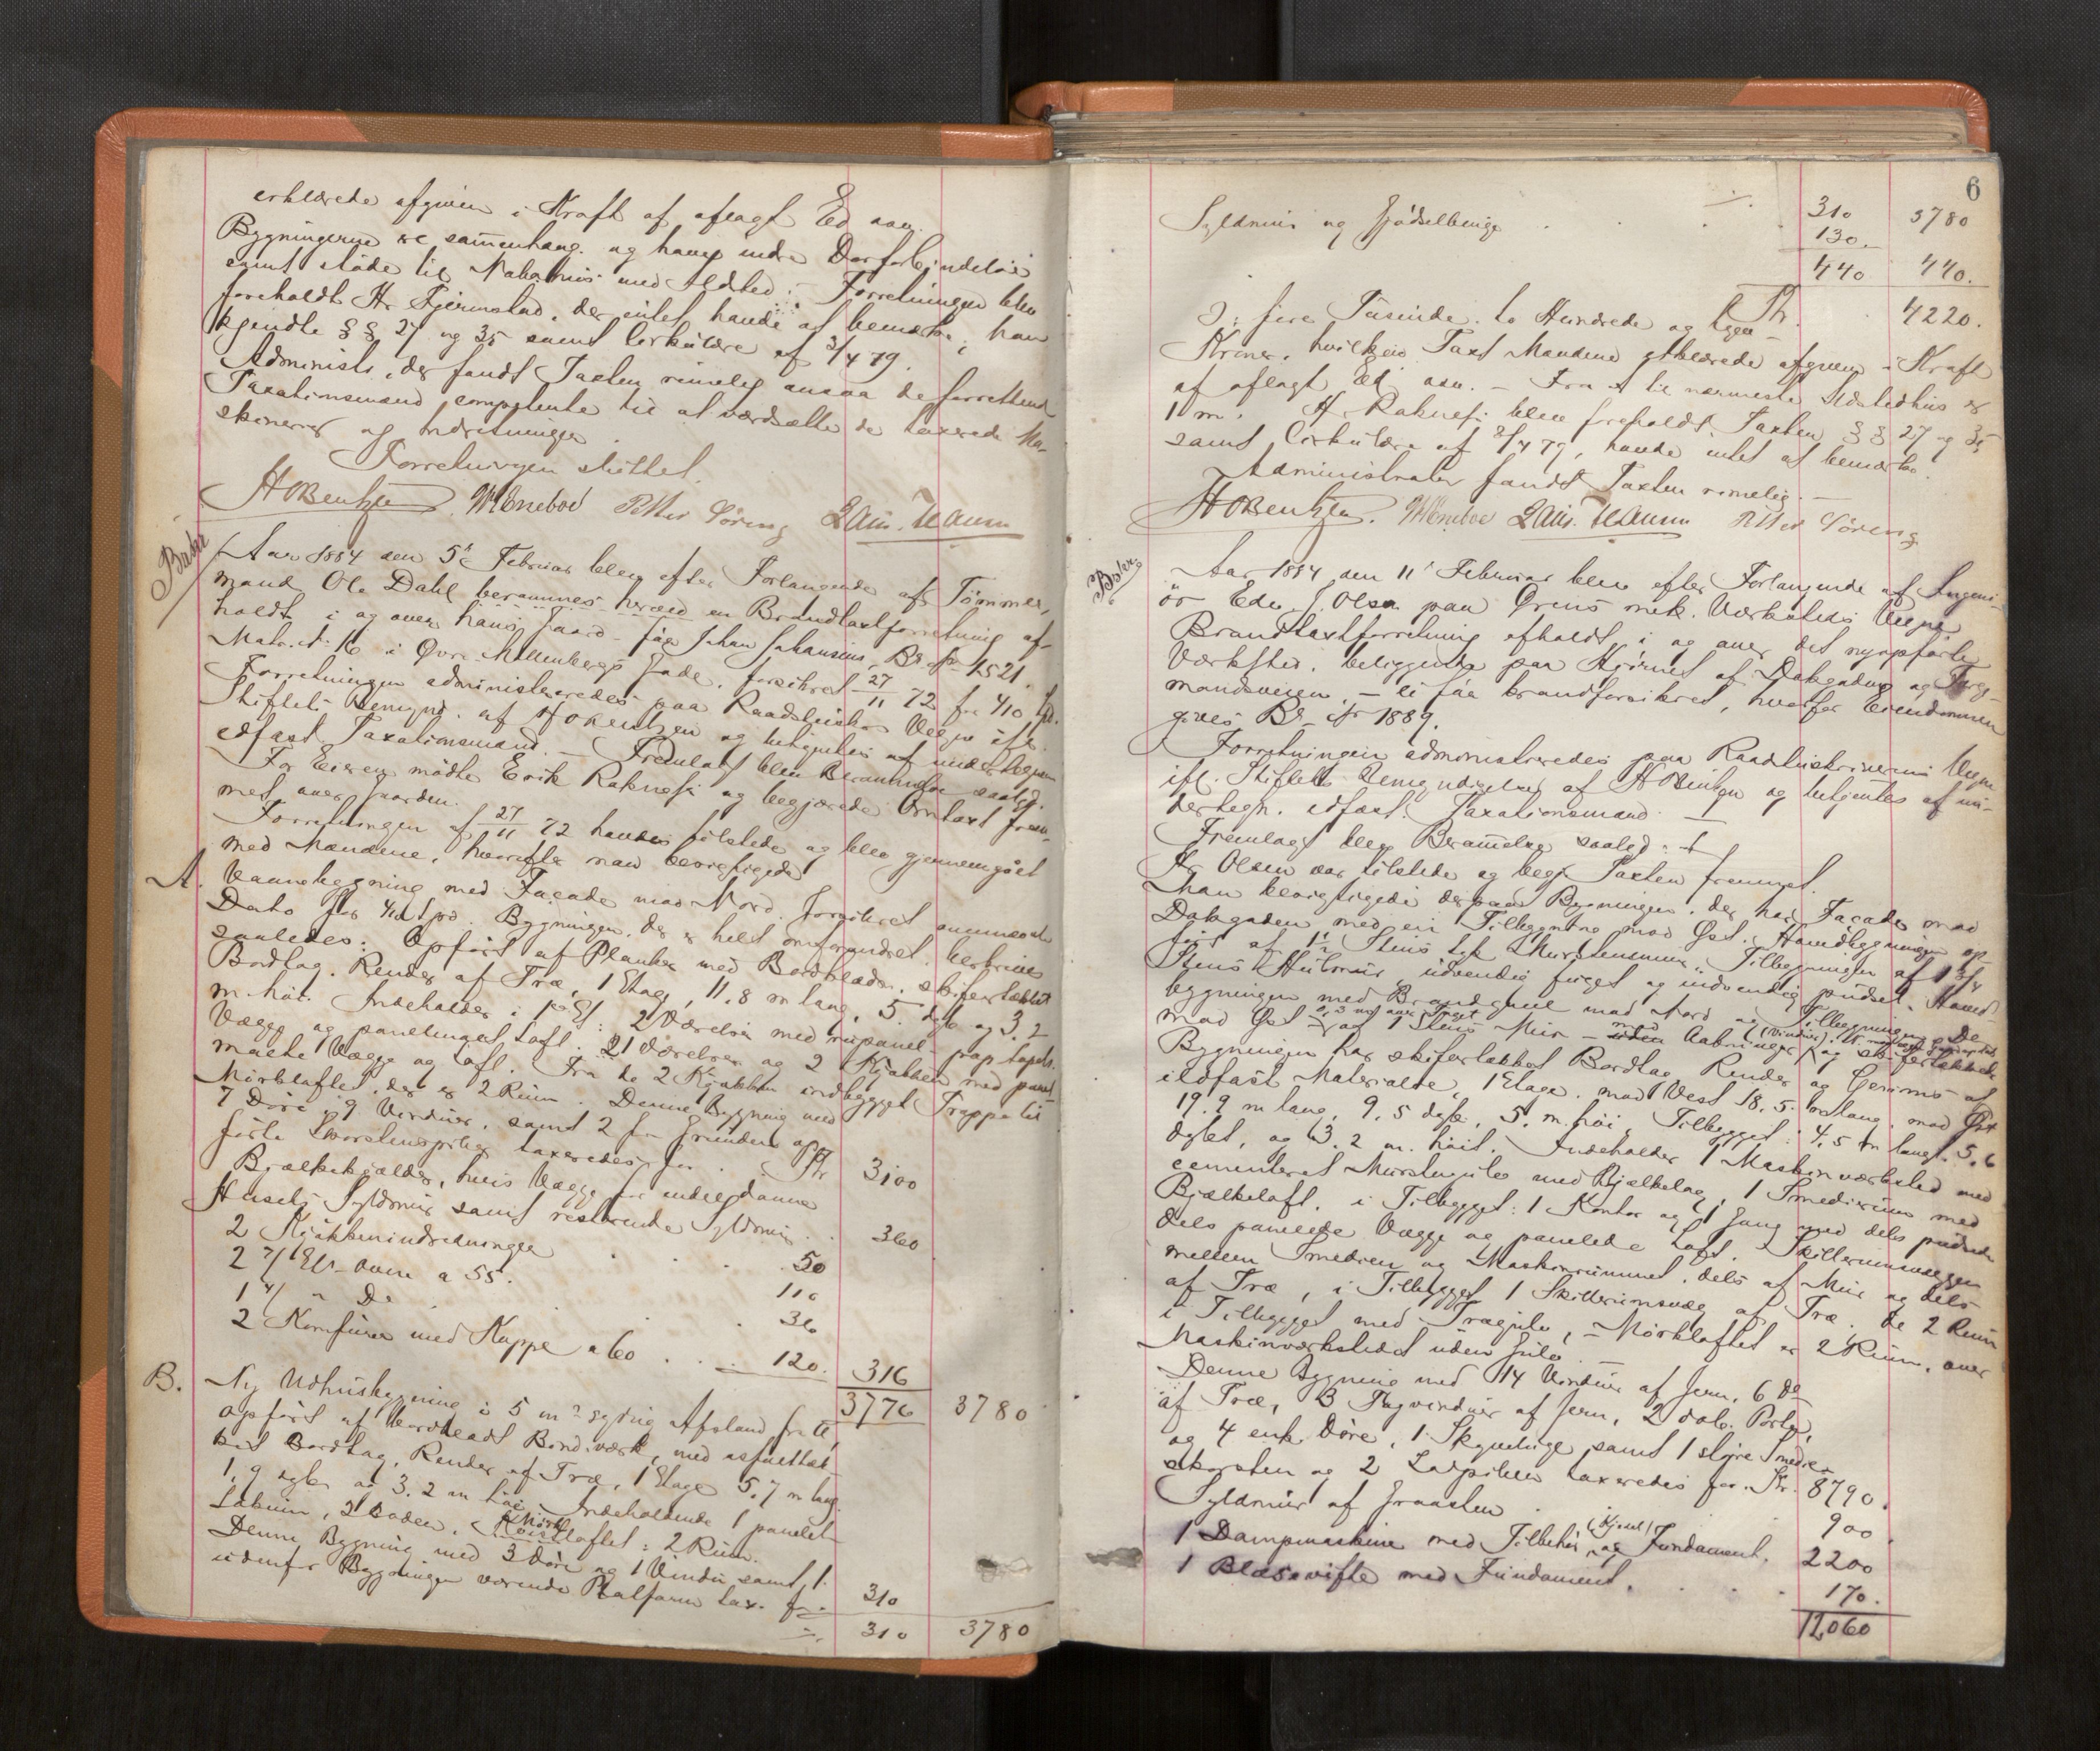 erklærede afgiven i Kraft af aflagt Ed asv.
Bygningerne ere sammenhæng. og have indre Dørforbindelse
samt støde til Nabohus med Ildsted. Forretningen blev
foreholdt Hr Fjermstad, der intet havde at bemærke; han
kjendte §§ 27 og 35 samt Cirkulære af 8/4 79.
Administr. der fandt Taxten rimelig ansaa de forrettend
Taxationsmænd competente til at værdsætte de taxerede Ma-
skinerier og Indretninger
Forretningen sluttet.
HOBentzen. MEneboe Petter Søreng Laur. Hansen
Beskr
Aar 1884 den 5te Februar blev efter Forlangende af Tömmer,
mand Ole Dahl berammet en Brandtaxtforretning af-
holdt i og over hans Gaard - før Johan Johansens, Br. No 1521.
Matr. N. 16 i Øvre Møllenbergs Gade, forsikret 27/11 72 for 410 Spd.
Forretningen administreredes paa Raadstuesk. Vegne ifl.
Stiftets Bemynd. af HOBentzen og betjentes af undertegnede
edfast Taxationsmænd. - Fremlagt blev Berammelse saalyd.
For Eieren mødte Erik Raknes og begjærede Omtaxt frem-
met over Gaarden.
Forretningen af 27/11 72 havdes tilstede og blev gjennemgaaet
med Mændene, hvorefter man besigtigede
A. Vaanebygning med Façade mod Nord. Forsikret ovennævnte
Dato for 410 Spd. Bygningen, der er helt omforandret, beskrives
saaledes: Opført af Planker med Bordklædn. skifertækket
Bordtag. Render af Træ, 1 Etage, 11,8 m lang, 5 dyb og 3,2
m. høi. Indeholder i 1ste Et: 2 Værelser med rupanel- pap tapets.
Vægge og panelunget Loft. 1 Værelse og 2 Kjøkken med panel
malte Vægge og Loft. Fra de 2 Kjøkken indbygget Trappe til
Mørkloftet, der er 2 Rum. Denne Bygning med
7 Døre, 9 Vinduer, samt 2 fra Grunden op-
førte Skorstenspiber taxeredes for . Kr 3100
Bjælkekjælder, hvis Vægge for endel danne
Husets Syldmur samt resterende Syldmur . . 360
2 Kjøkkenindretninger . . . 50
2 3/ Et-Ovne a 55. . . . 110
1 2/ " Do . . . 36
2 Komfurer med Kappe a 60 . . . 120. 316
3776 3780
B. Ny Udhusbygning i 5 m sydlig Afstand fra A,
opført af bordklædt Bindværk, med asfalttæk-
ket Bordtag, Render af Træ, 1 Etage 5,7 m lang
1,9 dyb og 3,2 m høi. Indeholdende 1 panelet
Lokum, 2 Boder. Mørkloftet: 2 Rum.
Denne Bygning med 3 Døre og 1 Vindu samt 1
udenfor Bygningen værende Platform tax. for 310
310 3780
6
310 3780
Syldmur og Gjødselbinge . . . 130.
440 440.
Kr. 4220.
ɔ: fire Tusinde to Hundrede og tyve
Kroner, hvilken Taxt Mændene erklærede afgiven i Kraft
af aflagt Ed asv. - Fra A til nærmeste Ildstedhus er
1 m. Hr Raknes blev foreholdt Taxten §§ 27 og 35
samt Cirkulære af 8/4 79, havde intet at bemærke.
Administrator fandt Taxten rimelig. -
HOBentzen. MEneboe Laur. Hansen Petter Søreng
Beskr
Aar 1884 den 11te Februar blev efter Forlangende af Ingeni-
ör Edv. J. Olsen paa Ørens mek. Værksteds Vegne
Brandtaxtforretning afholdt i og over det nyopførte
Værksted, beliggende paa Hjørnet af Dokgaden og Færg-
mandsveien, - ei før brandforsikret, hvorfor Eiendommen
gives Br. No 1889.
Forretningen administreredes paa Raadstuskriverens Vegne
ifl. Stiftets Bemyndigelse af HOBentzen og betjentes af un-
dertegn. edfast. Taxationsmænd. -
Fremlagt blev Berammelse saalyd:
Hr Olsen var tilstede og begj. Taxten fremmet.
Man besigtigede derpaa Bygningen, der har Façade mod
Dokgaden med en Tilbygning mod Øst. Hovedbygningen op-
ført af 1 1/2 Stens Murstensmur, Tilbygningen af 1 3/4
Stens Hulmur, udvendig fuget og indvendig pudset. Hoved-
bygningen med Brandgavle mod Nord og Tilbygningen De
mod Øst 0,3 m over Taget af 1 Stens Mur - med Aabninger (Vinduer) og skifertækket
Bygningen har skifertækket Bordtag Render og Gesims af
ildfast Materiale, 1 Etage, mod Vest 18,5 m lang, mod Øst
19,9 m lang, 9,5 dyb, 5 m. høi, Tilbygget: 4,5 m langt, 5,6
dybt, og 3,2 m. høit. Indeholder 1 Maskinværksted med
cementeret Murstengulv med Bjælkelag, 1 Smedierum med
Bjælkeloft, i Tilbygget: 1 Kontor og 1 Gang med dels pudsede
dels panelede Vægge og panelede Loft. Skillerumsvæggen
mellem Smedien og Maskinrummet, dels af Mur og dels
af Træ, i Tilbygget 1 Skillerumsvæg af Træ. De 2 Rum
i Tilbygget med Trægulv, - Mørkloftet er 2 Rum, over
Maskinværkstedet uden Gulv. -
Denne Bygning med 14 Vinduer af Jern, 6 Do
af Træ, 3 Tagvinduer af Jern, 2 dob. Porte,
og 4 enk. Døre, 1 Skyveluge samt 1 større Smedie-
skorsten og 2 Ladpiber taxeredes for. Kr. 8790.
Syldmur af Graasten . . . 900
1 Dampmaskine med Tilbehør (Kjedel) og Fundament, 2200
1 Blæsevifte med Fundament. . . . 170.
12,060